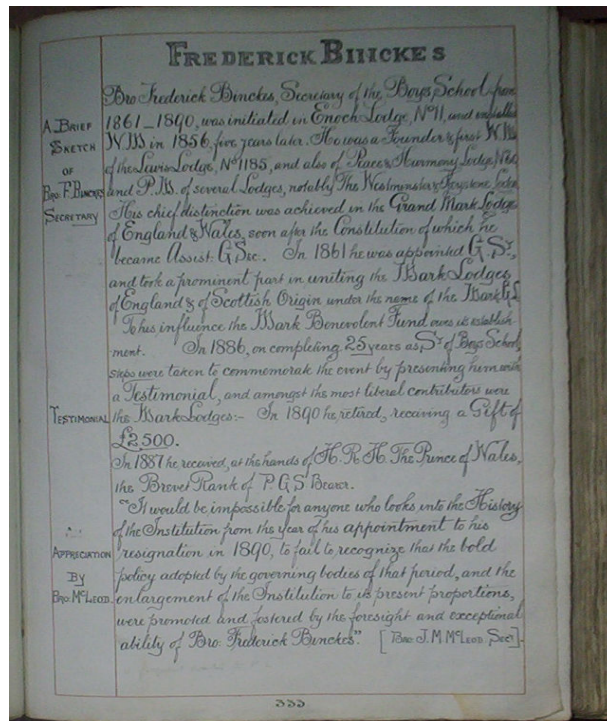 FREDERICK BINCKES
Bro Frederick Binckes, Secretary of the Boys School, from
A BRIEF
1861_1890, was initiated in Enoch Lodge, No 11, and installed
SKETCH
W.M in 1856, five years later. He was a Founder & first W.M.
OF
of the Lewis Lodge, No 1185, and also of Peace & Harmony Lodge,
BRO. F. BINCKES
and P.M. of several Lodges, notably The Westminster & Keystone Lodge
SECRETARY
His chief distinction was achieved in the Grand Mark Lodge
of England & Wales, soon after the Constitution of which he
became Assist. G Sec. In 1861 he was appointed G. Sy.,
and took a prominent part in uniting the Mark Lodges
of England & of Scottish Origin under the name of the Mark G.L
To his influence the Mark Benevolent Fund owes its establish-
ment. In 1886, on completing 25 years as Sy of Boys School,
steps were taken to commemorate the event by presenting him with
a Testimonial, and amongst the most liberal contributors were
TESTIMONIAL
the Mark Lodges:- In 1890 he retired, receiving a Gift of
£2,500.
In 1887 he received, at the hands of H. R. H. The Prince of Wales,
the Brevet Rank of P. G S Bearer.
"It would be impossible for anyone who looks into the History
of the Institution from the year of his appointment to his
APPRECIATION
resignation in 1890, to fail to recognize that the bold
BY
policy adopted by the governing bodies of that period, and the
BRO: MCLEOD.
enlargement of the Institution to its present proportions,
were promoted and fostered by the foresight and exceptional
ability of Bro: Frederick Binckes". [BRO J. M. MCLEOD. Secy].
333